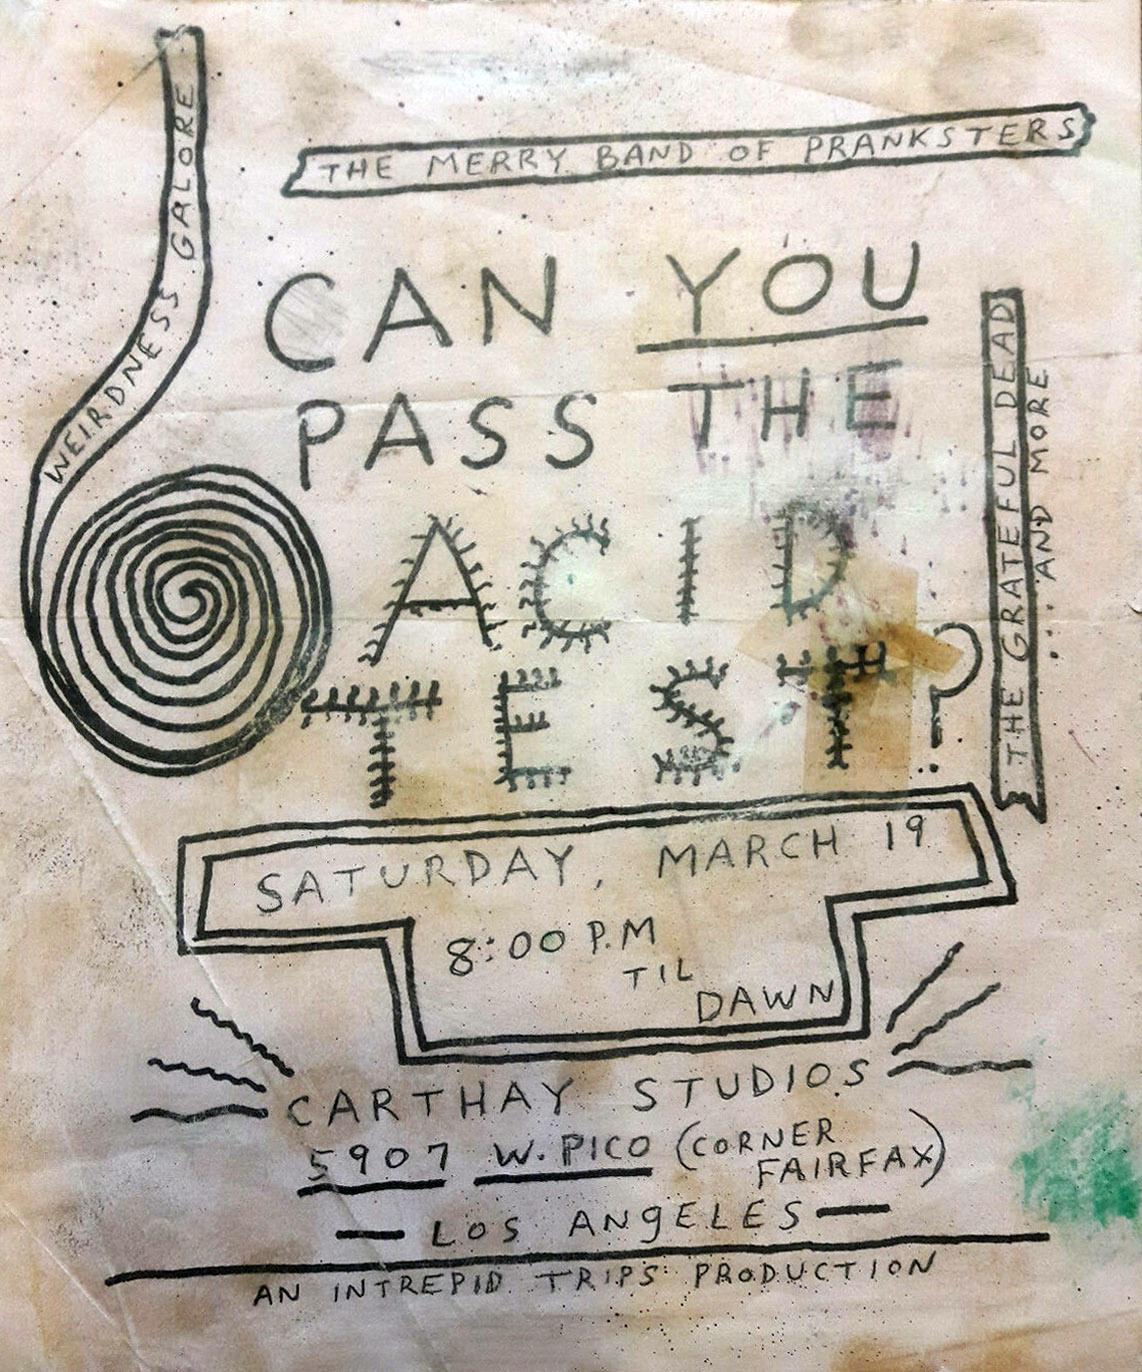 WEIRDNESS GALORE
THE MERRY BAND OF PRANKSTERS
CAN YOU
PASS THE
ACID
TEST?
THE GRATEFUL DEAD
... AND MORE
SATURDAY, MARCH 19
8:00 P.M
TIL
DAWN
CARTHAY STUDIOS
5907 W. PICO (CORNER
FAIRFAX)
— LOS ANgELES —
AN INTREPID TRIPS PRODUCTION